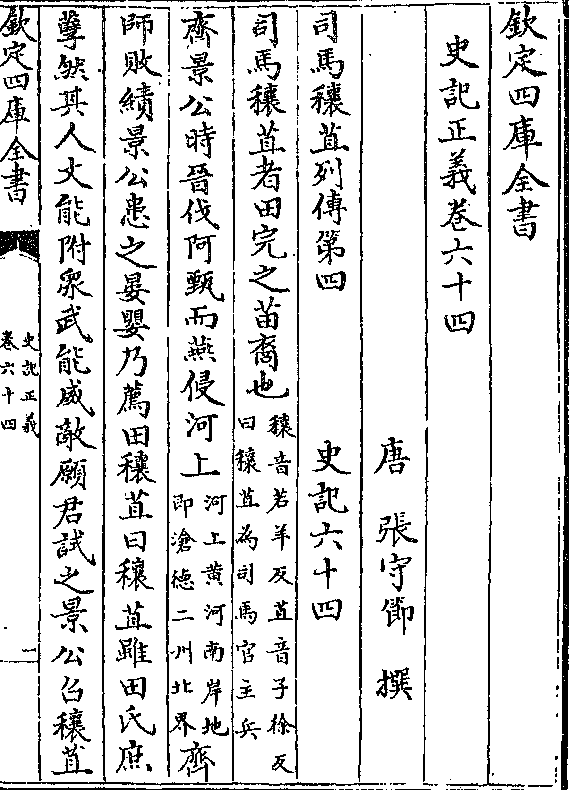 欽定四庫全書
史記正義卷六十四
唐 張守節 撰
司馬穰苴列傳第四 史記六十四
司馬穰苴者田完之苗裔也穰音若羊反苴音子徐反
曰穰苴為司馬官主兵
齊景公時晉伐阿甄而燕侵河上河上黄河南岸地
即滄德二州北界齊
師敗績景公患之晏嬰乃薦田穰苴曰穰苴雖田氏庶
孽然其人文能附衆武能威敵願君試之景公召穰苴
欽定四庫全書
史記正義
卷六十四
一